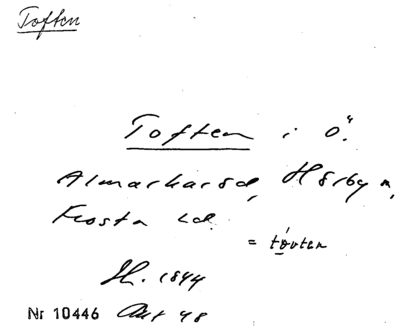 Toften
Toften i ö.
Almarkarsd, Hörby n,
Frosta hd.
= tó̤vten
H. 1844
Nr 10446 Akt 48